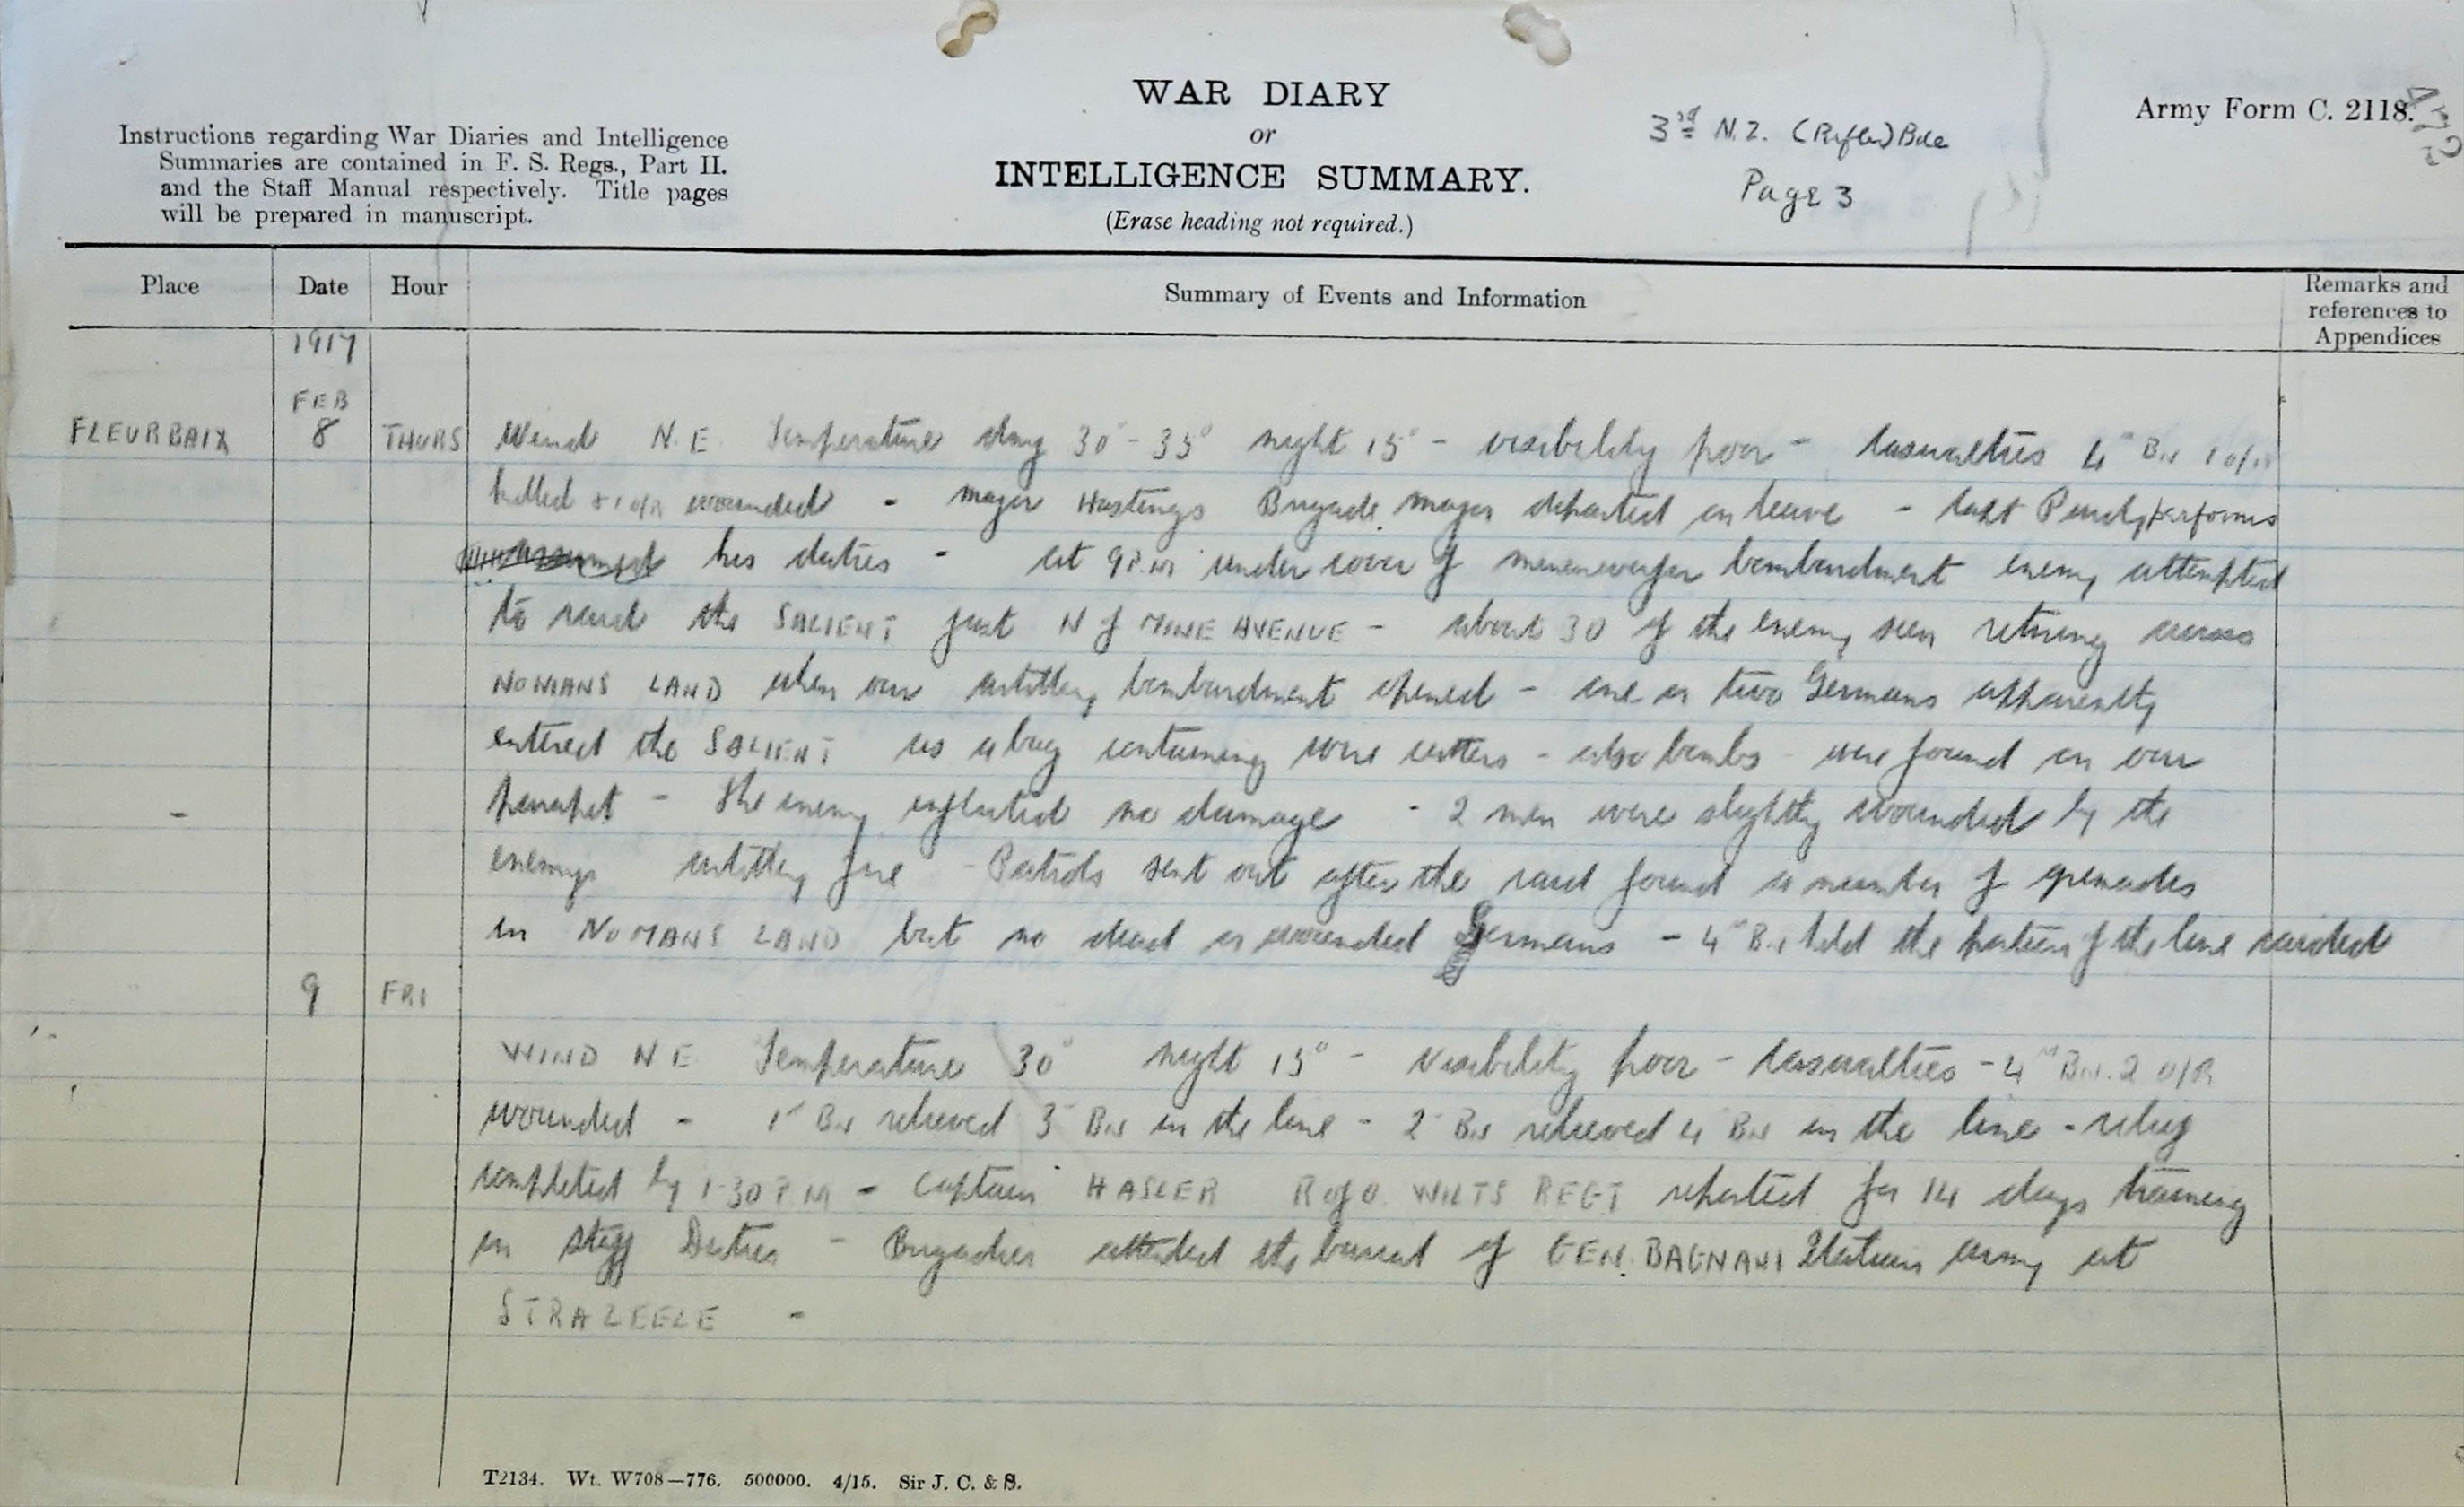 WAR DIARY
or
INTELLIGENCE SUMMARY.
(Erase heading not required.)
Instructions regarding War Diaries and Intelligence
Summaries are contained in F. S. Regs., Part II.
and the Staff Manual respectively. Title pages
will be prepared in manuscript.
3rd N.Z. (Rifle) Bde
Page 3
Army Form C. 2118.
Place Date Hour Summary of Events and Information Remarks and references to Appendices
1917
FEB
FLEURBAIX 8 THURS Wind N.E. Temperature day 30° - 35° night 15° - visibility poor - Casualties 4th Bn 1 o/r
killed & 1 o/R wounded - major Hastings Brigade major departed on leave - Capt Purdy performs
his duties - at 9 P.M under cover of minenwerfer bombardment enemy attempted
to raid the SALIENT just N of MINE AVENUE - about 30 of the enemy seen retiring across
NOMANS LAND when our artillery bombardment opened - one or two Germans apparently
entered the SALIENT as a bag containing wire cutters - also bombs - were found on our
parapet - The enemy inflicted no damage - 2 men were slightly wounded by the
enemys artillery fire - Patrols sent out after the raid found a number of grenades
in NOMANS LAND but no dead or wounded Germans - 4th Bn held the portion of the line raided
9 FRI
WIND N E Temperature 30° night 15° - Visibility poor - Casualties - 4th Bn. 2 O/R
wounded - 1st Bn relieved 3 Bn in the line - 2 Bn relieved 4 Bn in the line - relief
completed by 1-30 P.M - Captain HASLER R of O. WILTS REGT reported for 14 days training
in Staff Duties - Brigadier attended the burial of GEN. BAGNANI Italian army at
STRAZEELE -
T2134. Wt. W708—776. 500000. 4/15. Sir J. C. & S.